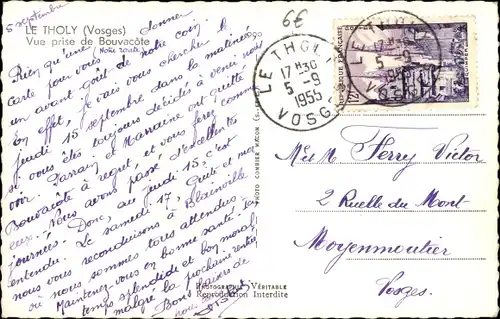 5 septembre
LE THOLY (Vosges)
Vue prise de Bouvacôte
6€
Rien qu'une donner
carte pour vous (notre route)
un avant goût de
En effet, je vais vous chercher le
jeudi 15 septembre dans la matinée
si vous êtes toujours décidés à venir nous
voir. Parrain et Marraine ont quitté
Bouvacôte à regret, et vous ferez comme
eux! Nous avons passé d'excellentes
journées. Donc, au jeudi 15, c'est
entendu. Le samedi 17, Guite et moi
vous reconduisons à Blainville
où nous sommes tous attendus.
Maintenez-vous en bonne santé
temps splendide et bon moral,
malgré la prochaine rentrée,
Bons baisers de
nous
LE THOLY
17H30
5-9
1955
VOSGES
LE THOLY
5-9
VOSGES
REPUBLIQUE FRANÇAISE
PHOTO COMBIER MACON
PHOTOGRAPHIE VÉRITABLE
Reproduction Interdite
Mr M. Ferry Victor
2 Ruelle du Mont
Moyenmoutier
Vosges.